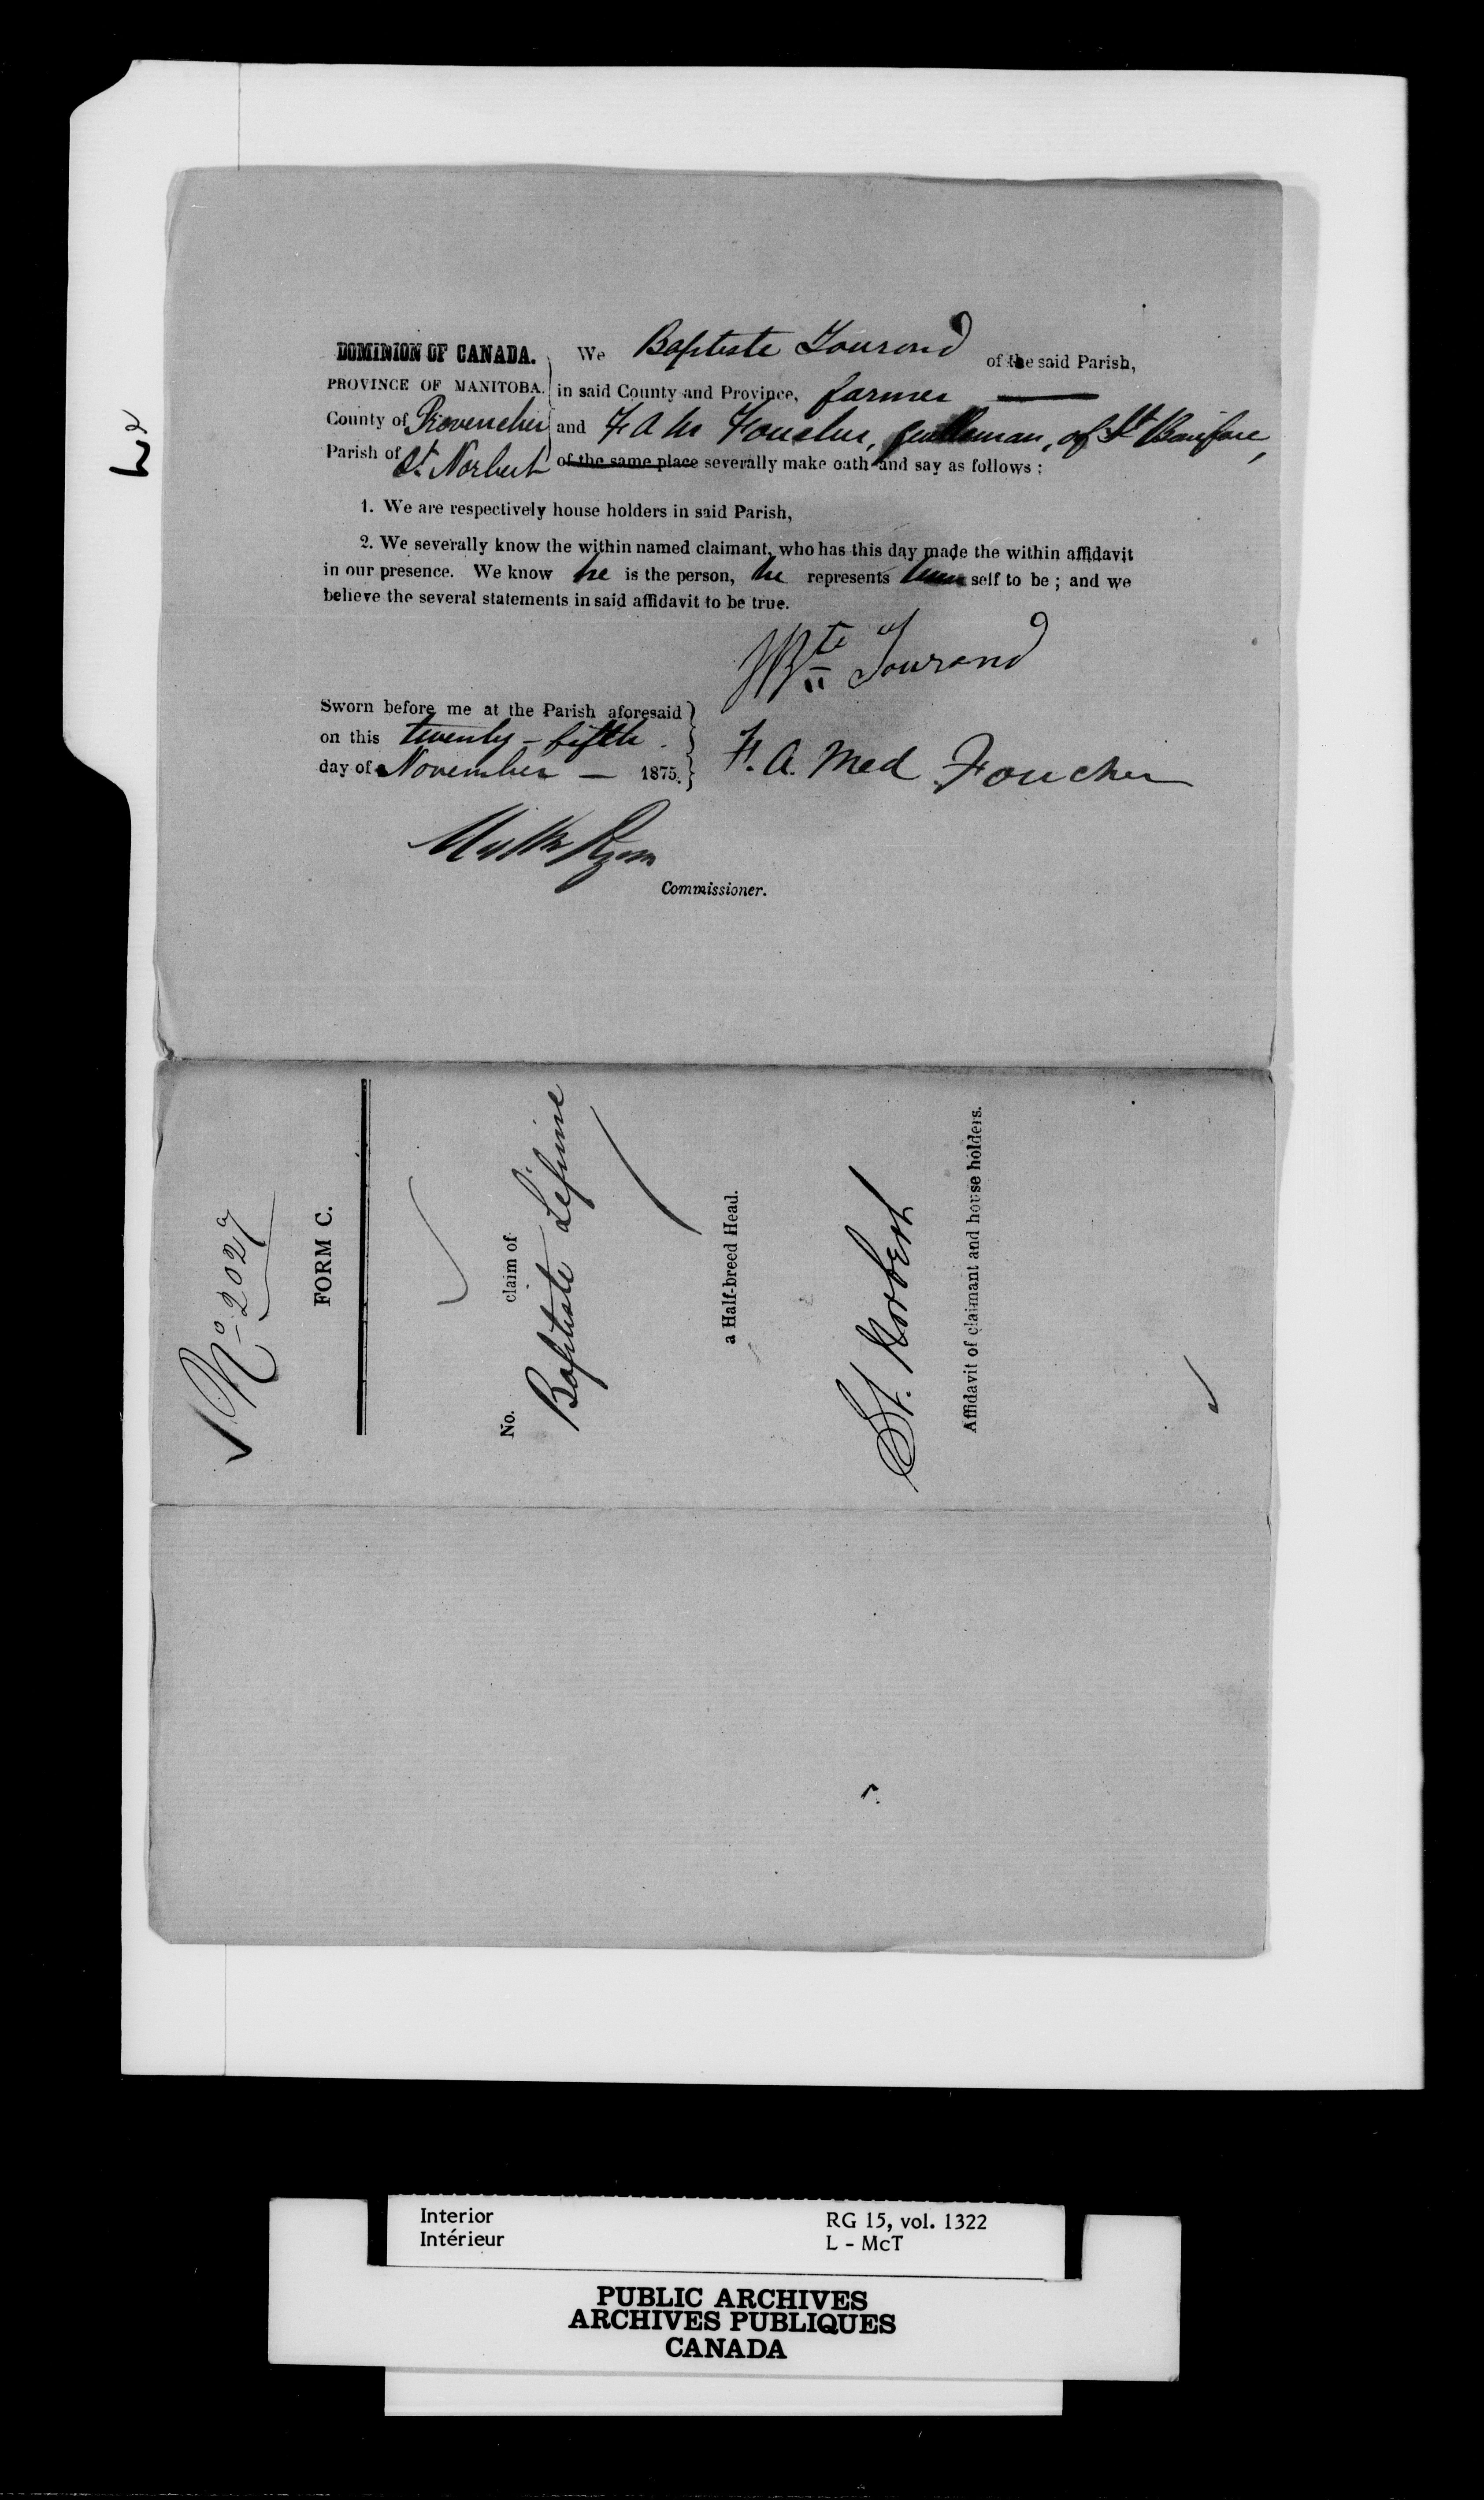 DOMINION OF CANADA.
PROVINCE OF MANITOBA.
County of Provencher
Parish of St. Norbert
We Baptiste Tourond of the said Parish,
in said County and Province, farmer
and F A M Foucher, gentleman, of St Boniface,
of the same place severally make oath and say as follows:
1. We are respectively house holders in said Parish,
2. We severally know the within named claimant, who has this day made the within affidavit
in our presence. We know he is the person, he represents himself to be; and we
believe the several statements in said affidavit to be true.
JBte Tourond
Sworn before me at the Parish aforesaid
on this twenty-fifth
day of November — 1875.
F. A. Med Foucher
Ryan
Commissioner.
No 2027a
FORM C.
No. claim of
Baptiste Lépine
a Half-breed Head.
St. Norbert
Affidavit of claimant and house holders.
Interior
Intérieur
RG 15, vol. 1322
L - McT
PUBLIC ARCHIVES
ARCHIVES PUBLIQUES
CANADA